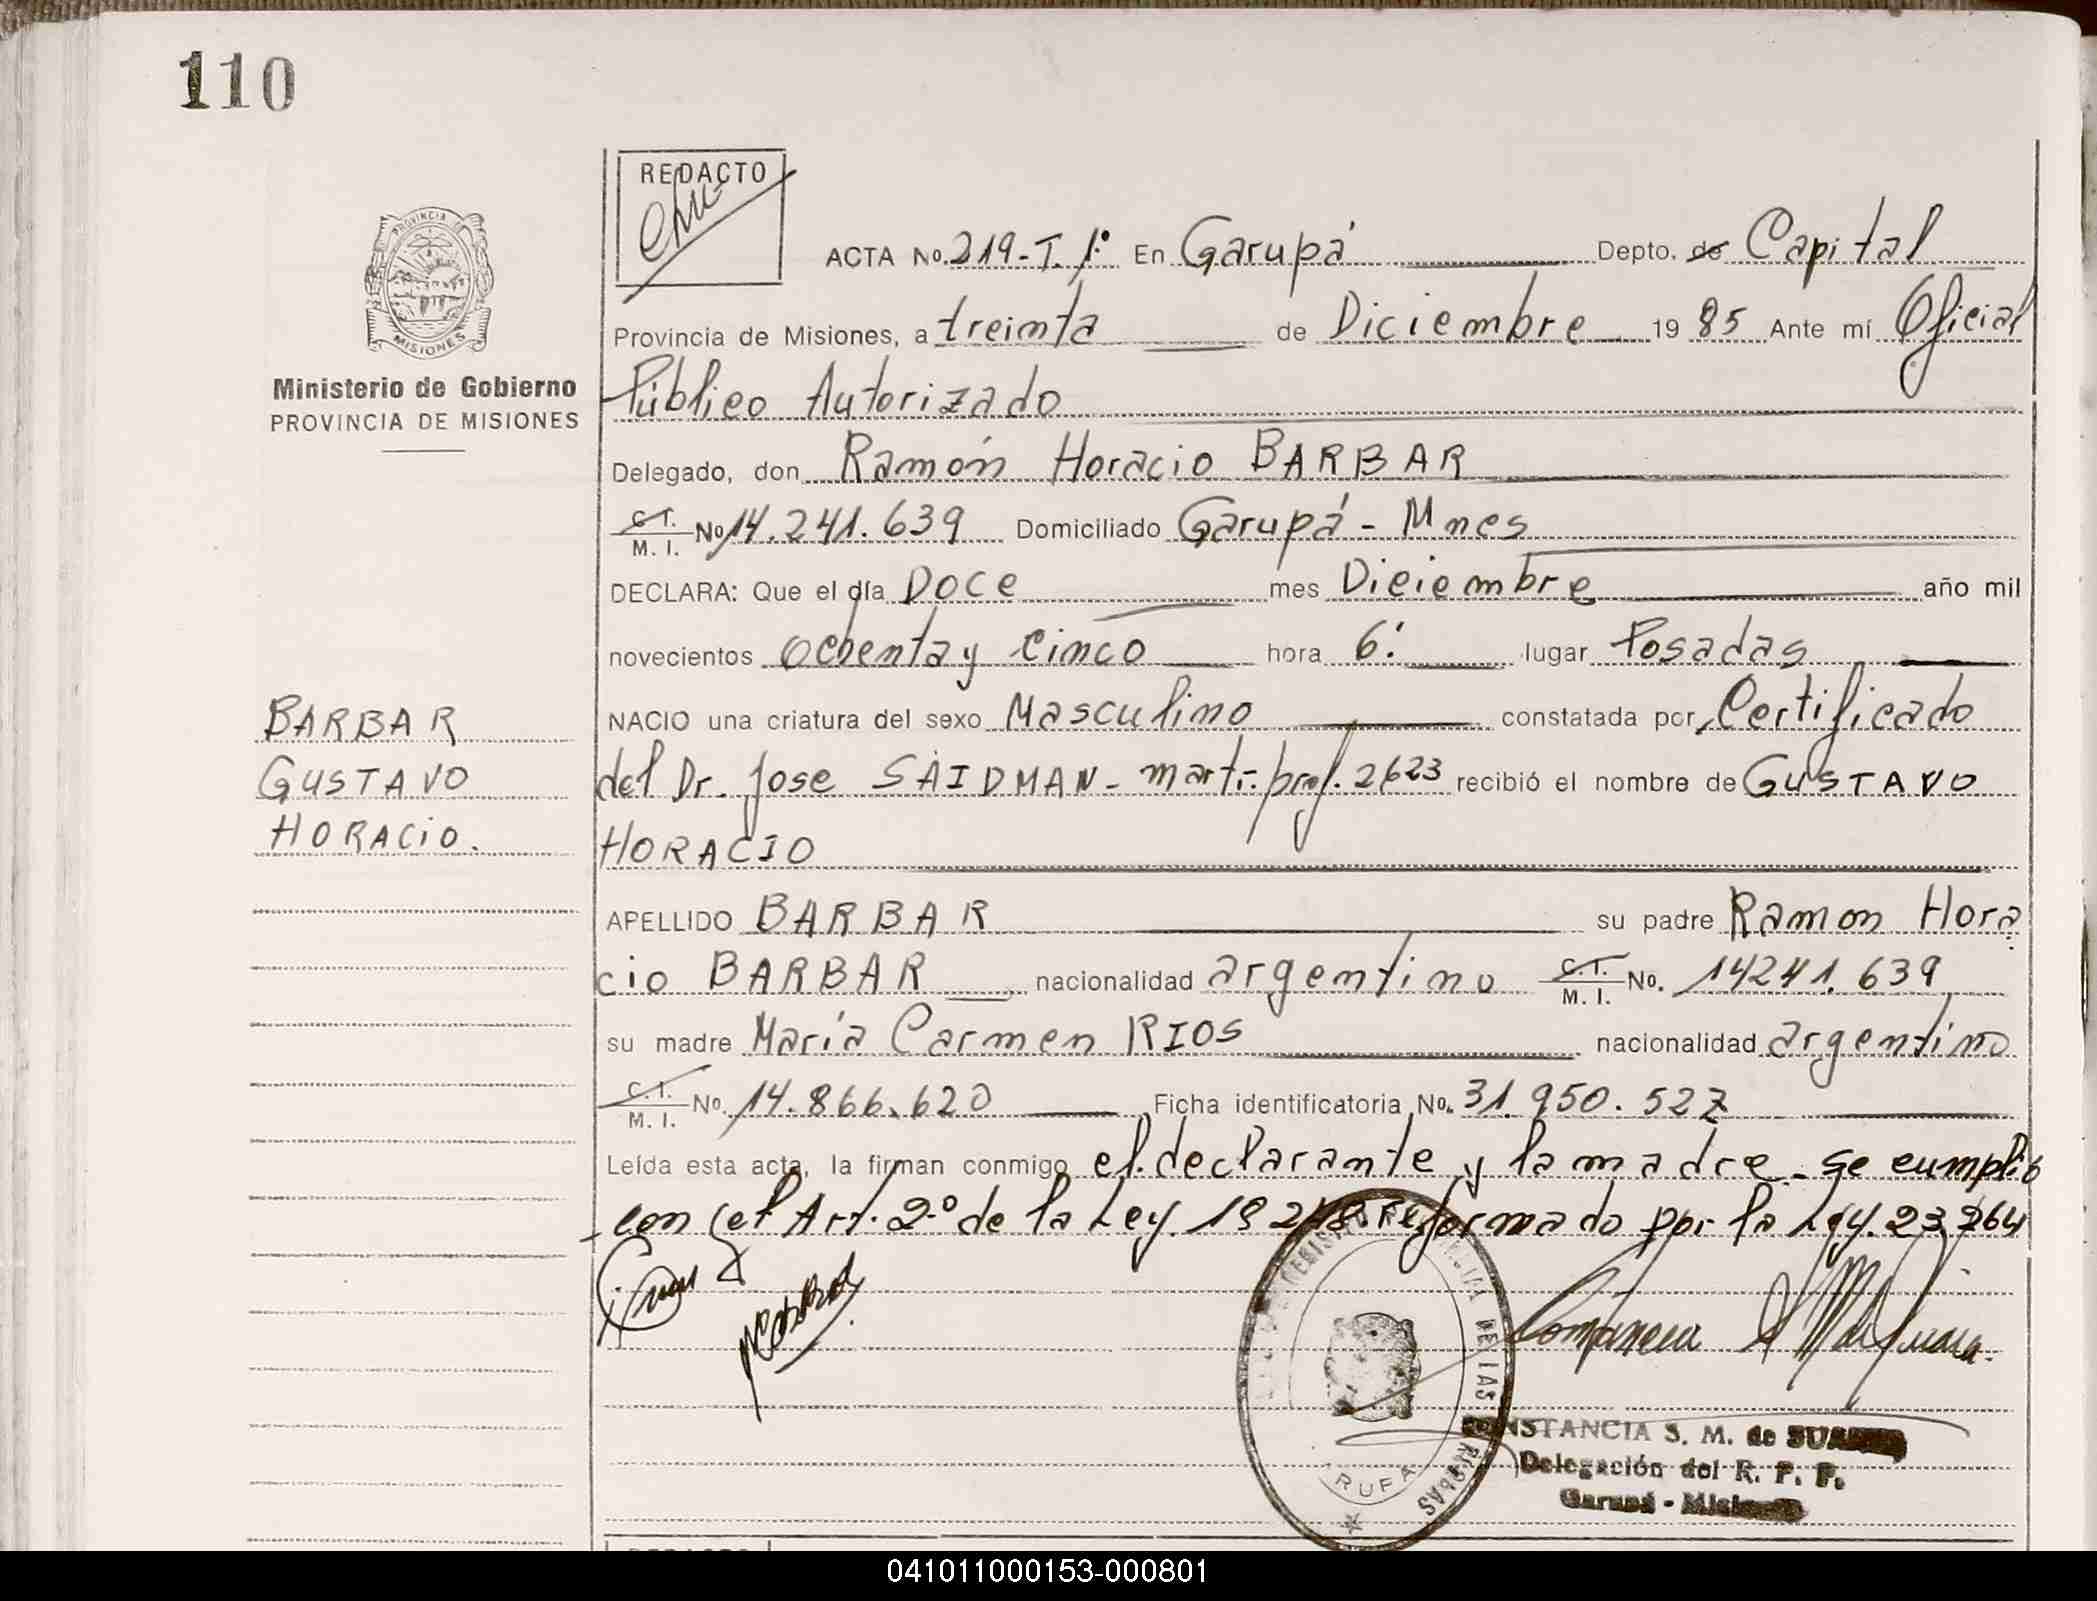 110
REDACTO
PROVINCIA DE
MISIONES
Ministerio de Gobierno
PROVINCIA DE MISIONES
ACTA No. 219-T. 1º En Garupá Depto. de Capital
Provincia de Misiones, a treinta de Diciembre 19 85 Ante mí Oficial
Público Autorizado
Delegado, don Ramón Horacio BARBAR
C. I. M. I. No 14.241.639 Domiciliado Garupá - Mnes
DECLARA: Que el día DOCE mes Diciembre año mil
novecientos Ochenta y Cinco hora 6: lugar Posadas
BARBAR
GUSTAVO
HORACIO.
NACIO una criatura del sexo Masculino constatada por Certificado
del Dr. Jose SAIDMAN - matr. prof. 2623 recibió el nombre de GUSTAVO
HORACIO
APELLIDO BARBAR su padre Ramon Hora
cio BARBAR nacionalidad argentino C. I. M. I. No. 14241.639
su madre María Carmen RIOS nacionalidad argentino
C. I. M. I. No. 14.866.620 Ficha identificatoria No. 31.950.527
Leída esta acta, la firman conmigo el declarante y la madre - se cumplió
con el Art. 2º de la Ley. 18.248 Reformado por la Ley. 23.264
DE LAS
CONSTANCIA S. M. de SUAREZ
Delegación del R. P. P.
Garupá - Misiones
041011000153-000801